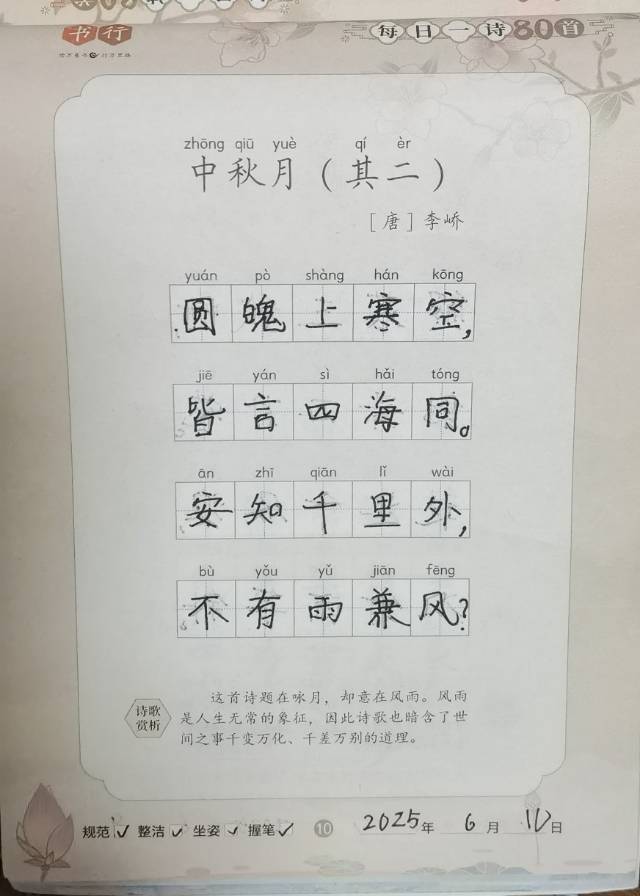 书行
每日一诗80首
zhōng qiū yuè qí èr
中秋月（其二）
［唐］李峤
yuán pò shàng hán kōng
圆魄上寒空,
jiē yán sì hǎi tóng
皆言四海同。
ān zhī qiān lǐ wài
安知千里外,
bù yǒu yǔ jiān fēng
不有雨兼风?
诗歌赏析
这首诗题在咏月，却意在风雨。风雨
是人生无常的象征，因此诗歌也暗含了世
间之事千变万化、千差万别的道理。
规范✓ 整洁✓ 坐姿✓ 握笔✓ 10 2025年 6月 10日